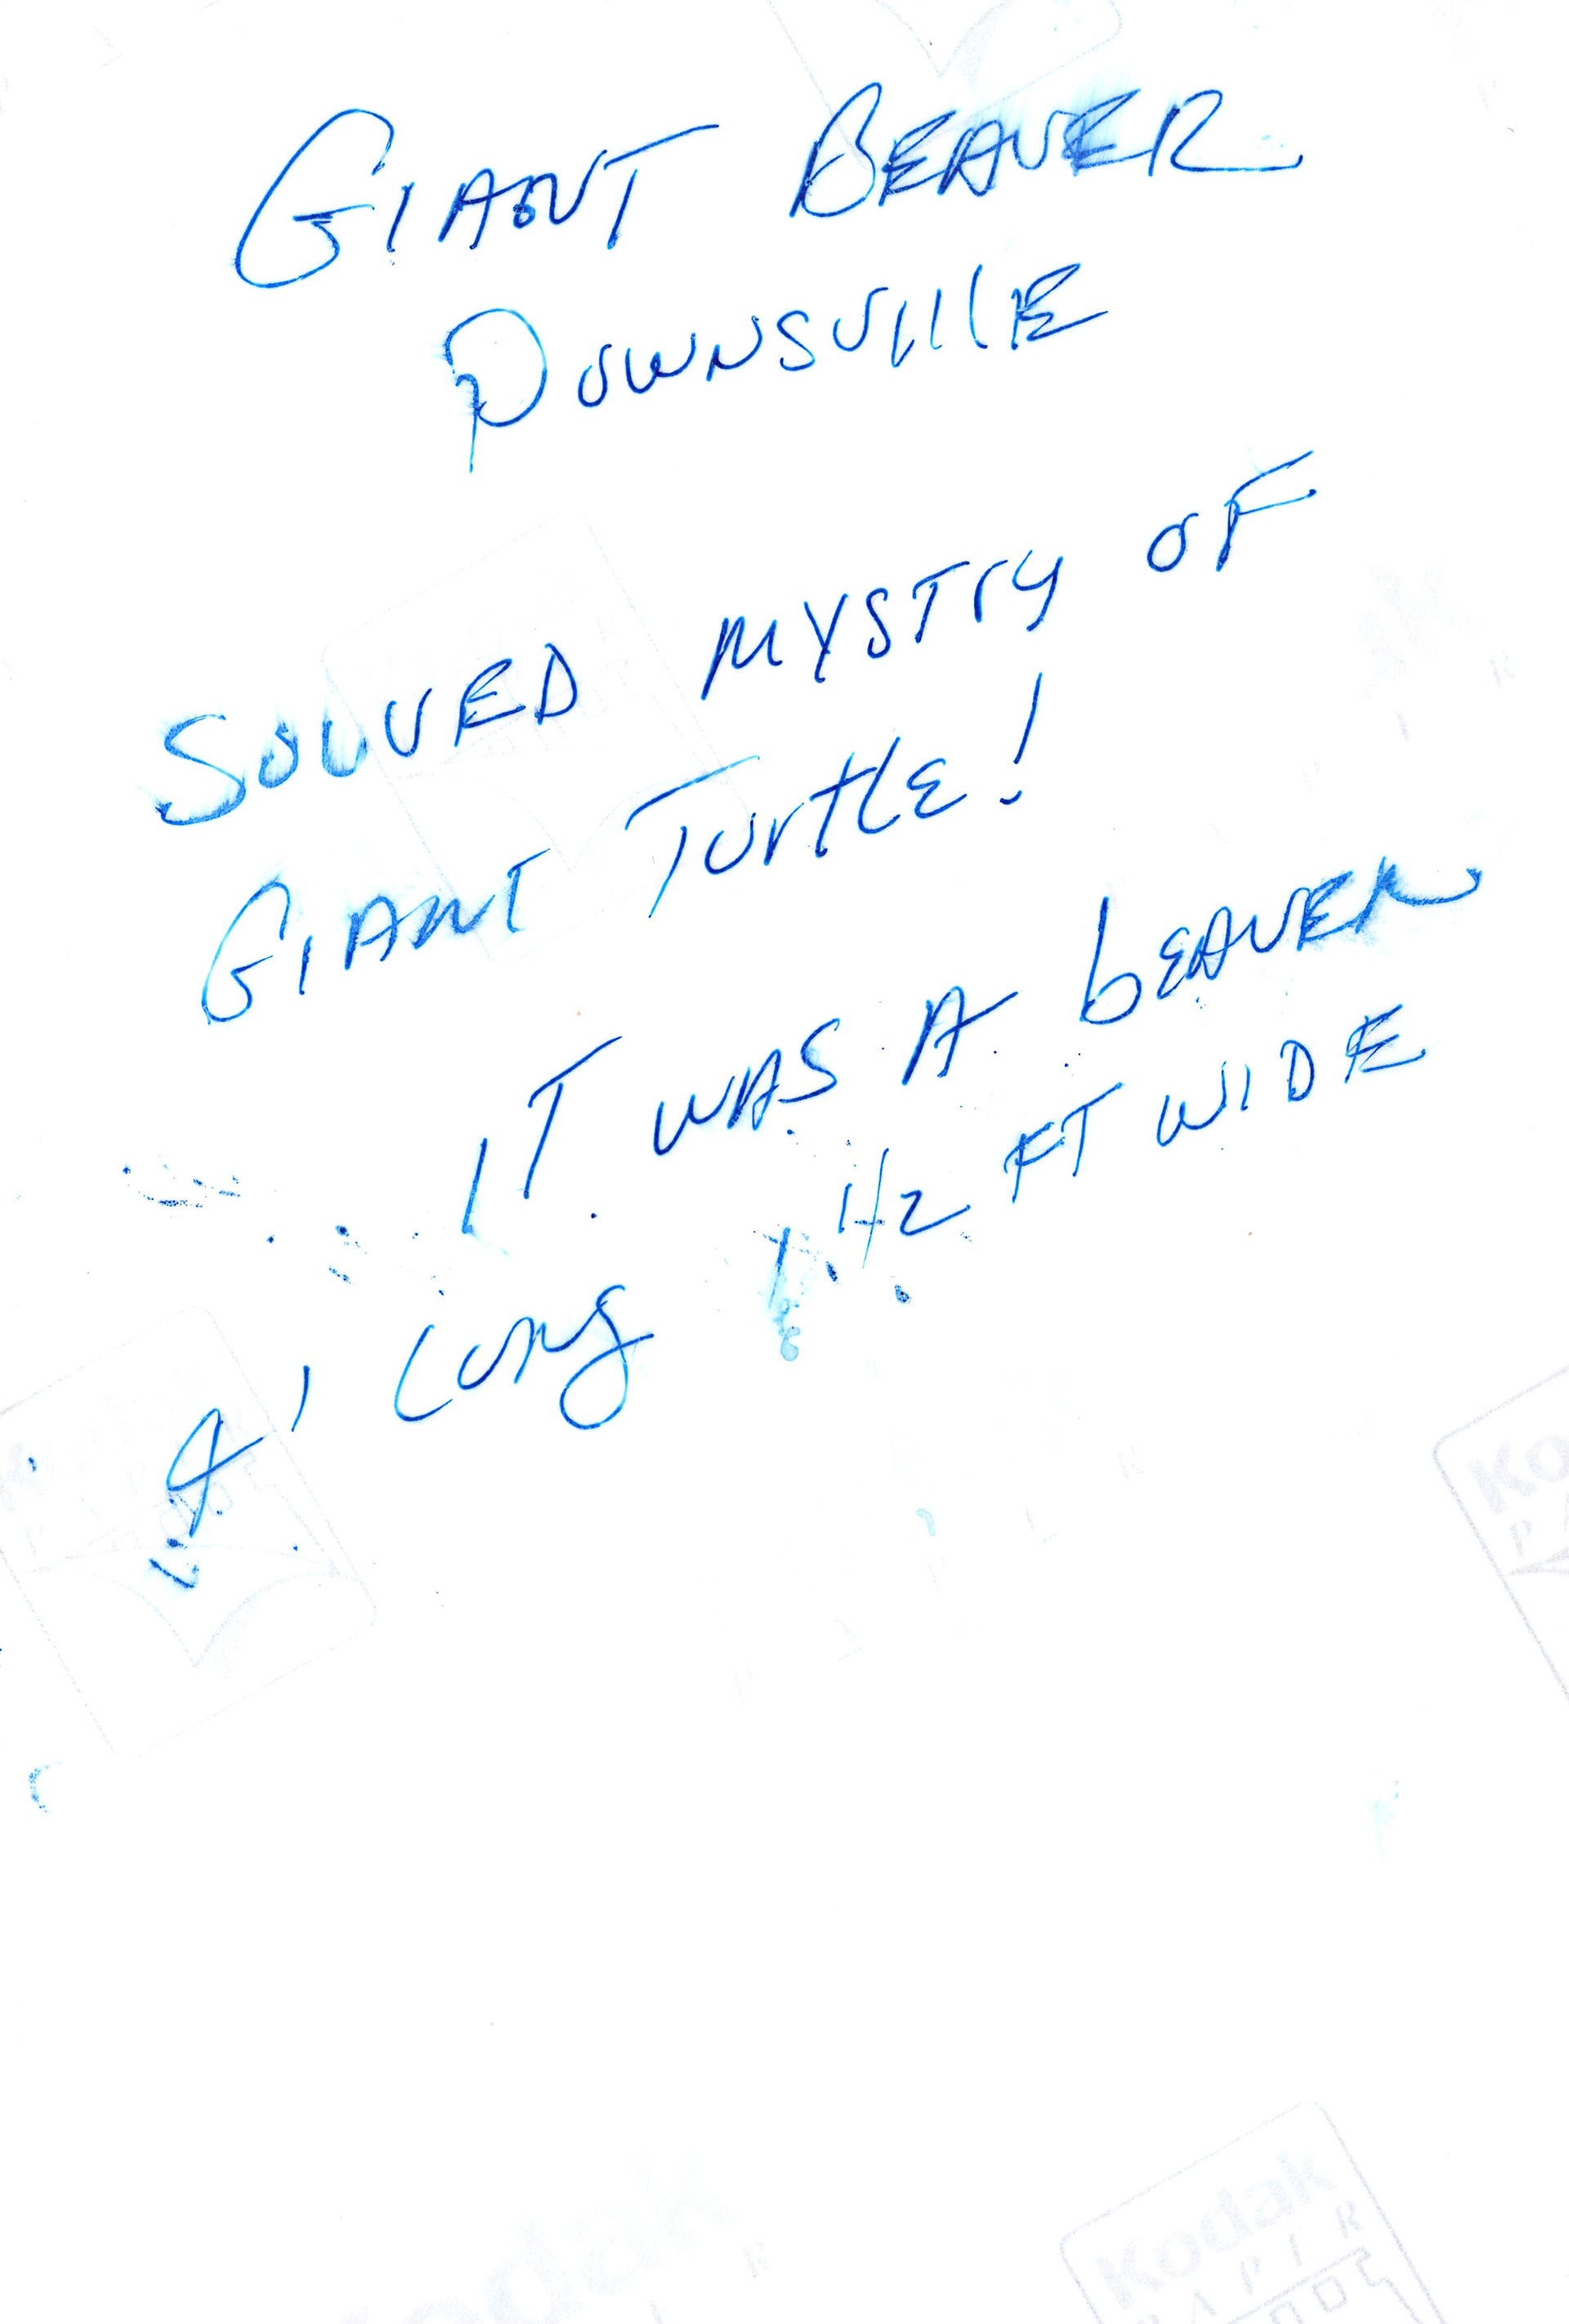 GIANT BEAVER
DOWNSVILLE
SOLVED MYSTRY OF
GIANT TURTLE!
IT WAS A BEAVER
4' LONG 1 1/2 FT WIDE
Kodak
PAPIR